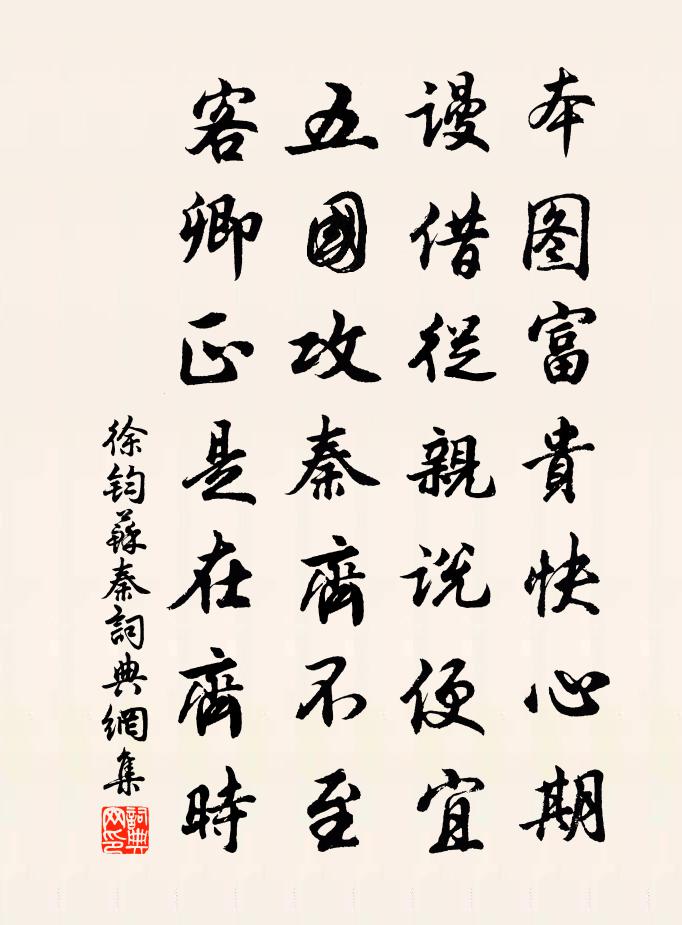 本图富貴快心期
谩借從親说便宜
五國攻秦齊不至
客卿正是在齊時
徐钧蘇秦詞典網集
詞典网印